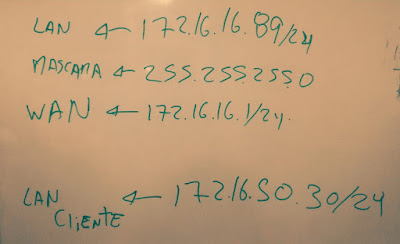 LAN ← 172.16.16.89/24
MASCARA ← 255.255.255.0
WAN ← 172.16.16.1/24.
LAN ← 172.16.50.30/24
CLiENTE